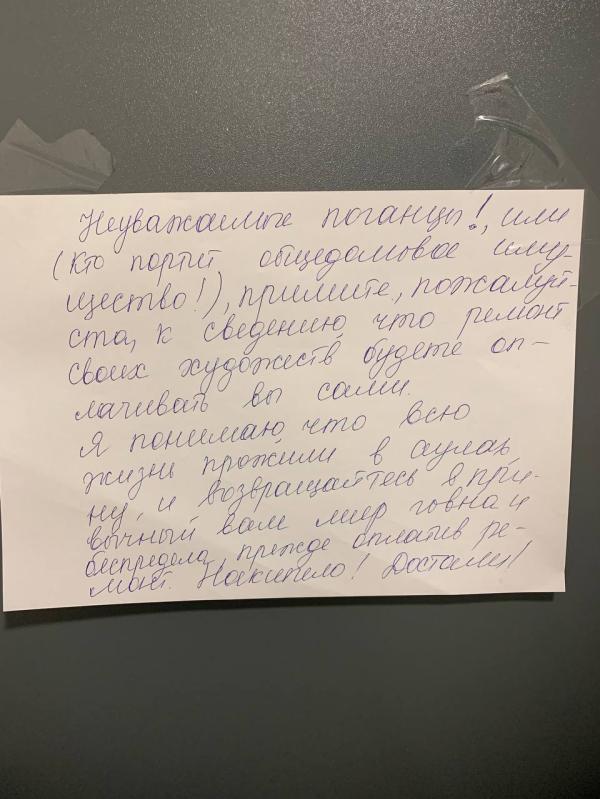 Неуважаемые поганцы!, или
(кто портит общедомовое иму-
щество!), примите, пожалуй-
ста, к сведению, что ремонт
своих художеств будете оп-
лачивать вы сами.
Я понимаю, что всю
жизнь прожили в аулах,
ну, и возвращайтесь в при-
вычный вам мир говна и
беспредела, прежде оплатив ре-
монт. Накипело! Достали!